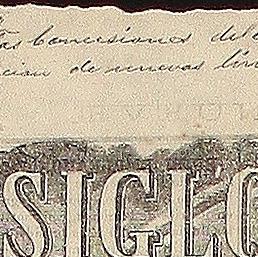 las concesiones del
cion de nuevas lin
SIGLO